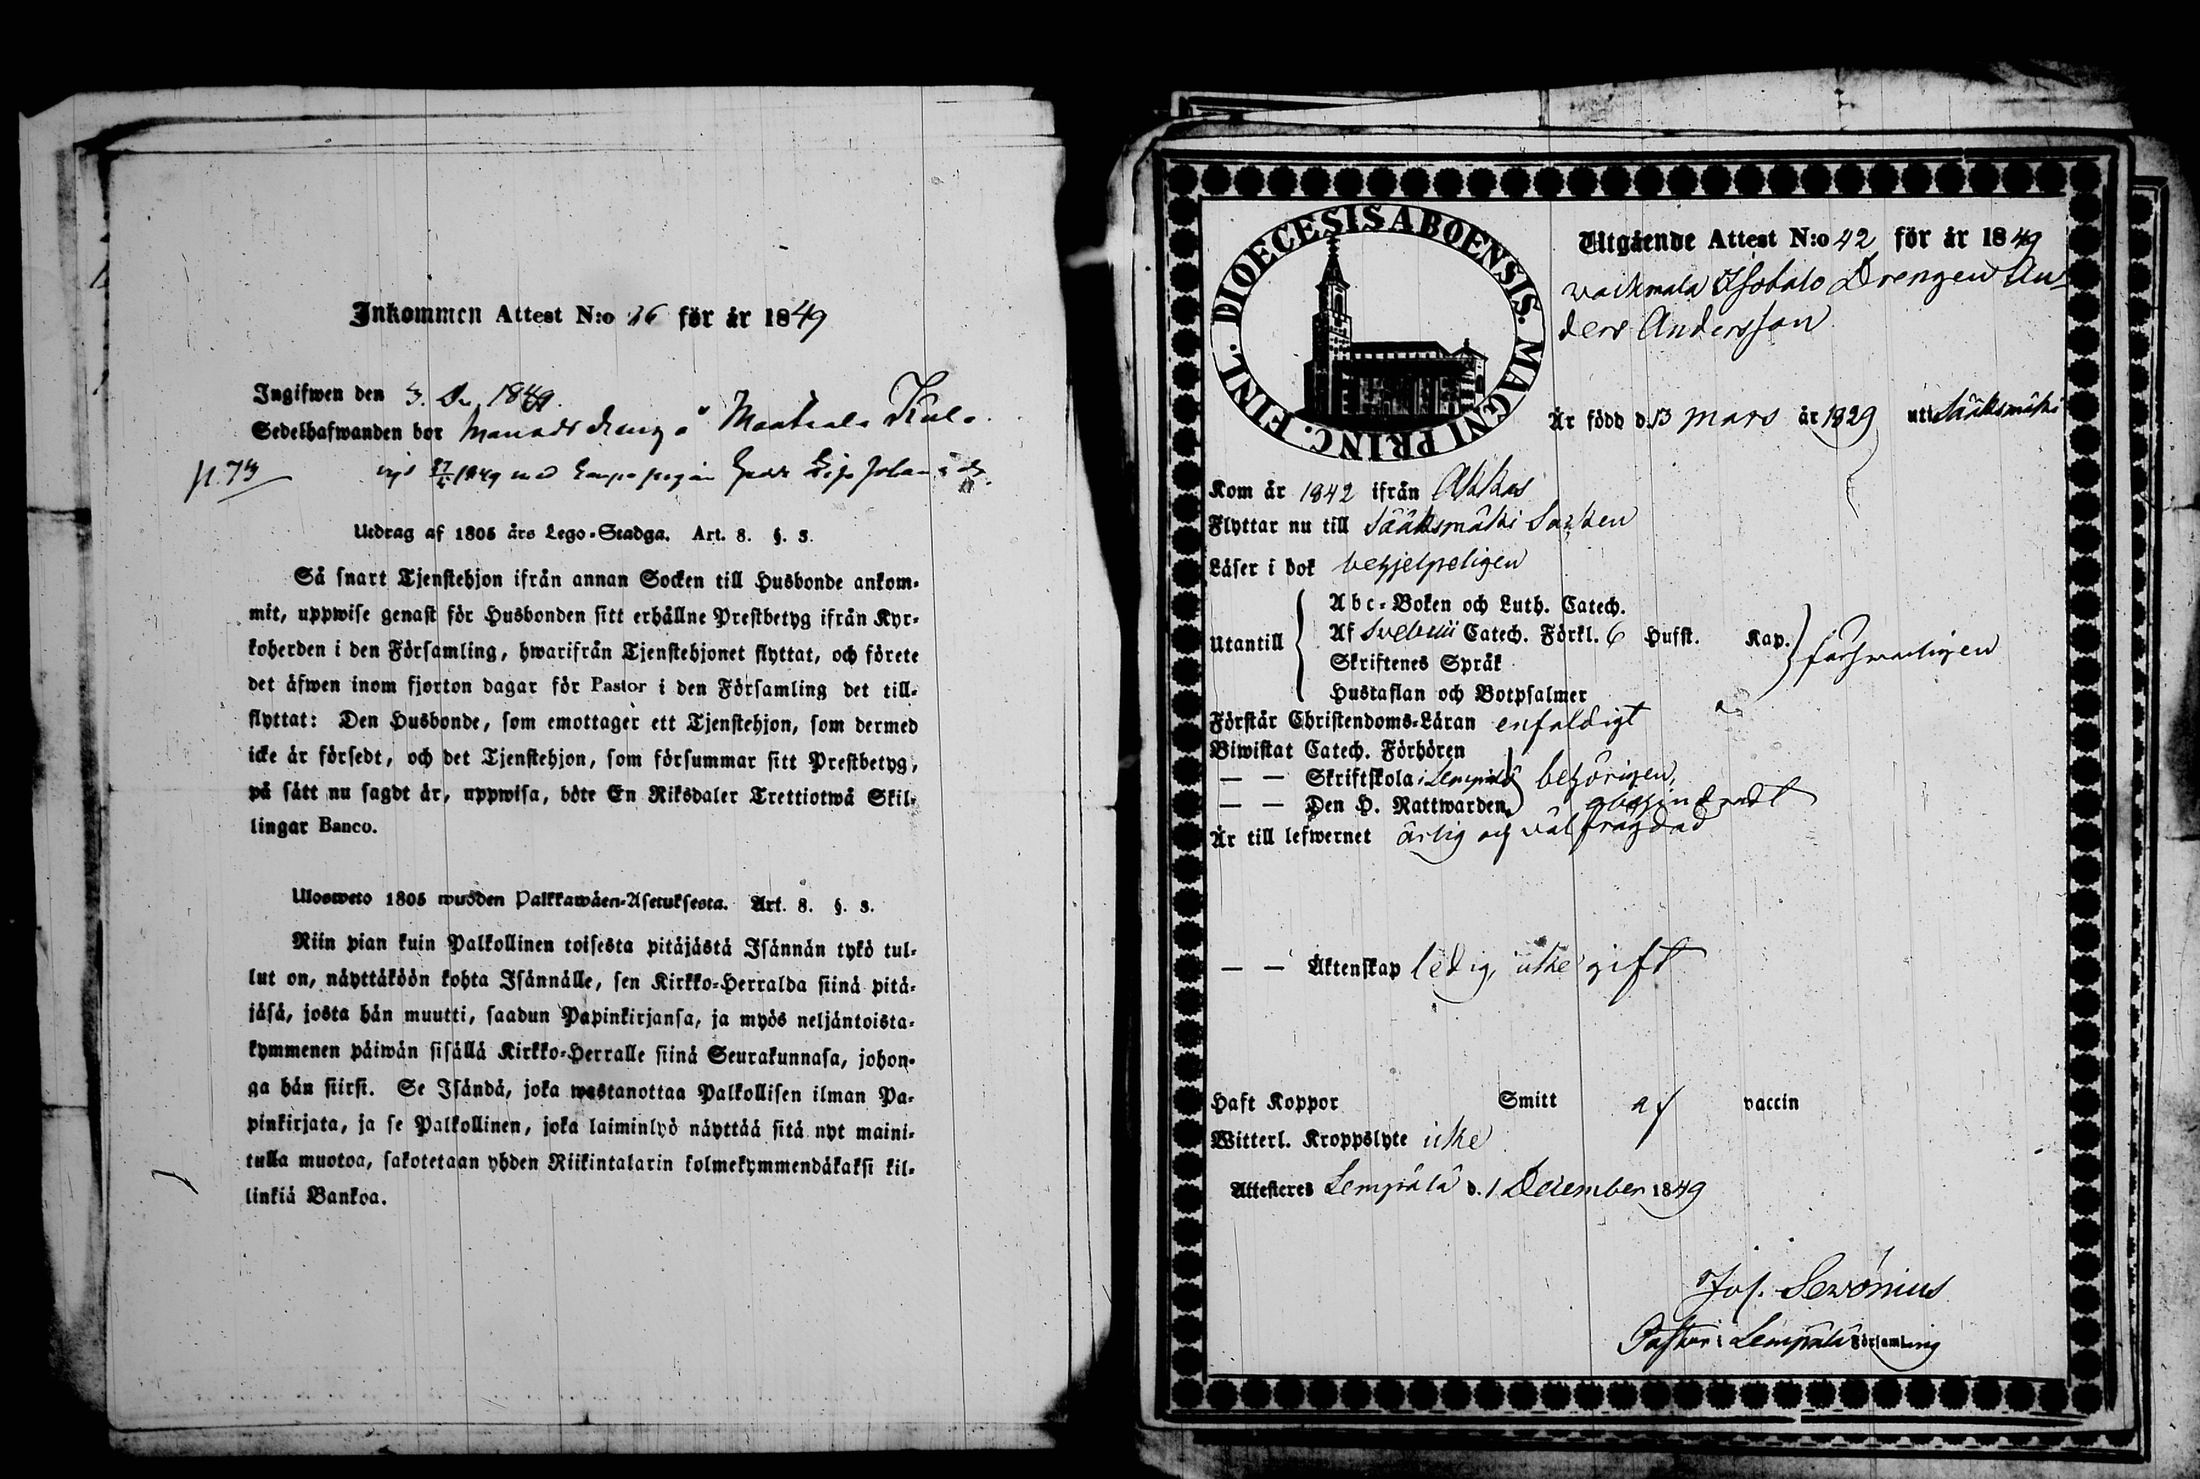 Inkommen Attest N:o 16 för år 1849
Ingifwen den 3. De. 1849.
Sedelhafwanden bor Manads dreng å Kulo
p. 73
1849
Utdrag af 1805 års Lego-Stadga. Art. 8. §. 3.
Så snart Tjenstehjon ifrån annan Socken till Husbonde ankom-
mit, uppwise genast för Husbonden sitt erhållne Prestbetyg ifrån Kyr-
koherden i den Församling, hwarifrån Tjenstehjonet flyttat, och förete
det äfwen inom fjorton dagar för Pastor i den Församling det till-
flyttat: Den Husbonde, som emottager ett Tjenstehjon, som dermed
icke är försedt, och det Tjenstehjon, som försummar sitt Prestbetyg,
på sätt nu sagdt är, uppwisa, böte En Riksdaler Trettiotwå Skil-
lingar Banco.
Ulosweto 1805 wuoden Palkkawäen-Asetuksesta. Art. 8. §. 3.
Niin pian kuin Palkollinen toisesta pitäjästä Isännän tykö tul-
lut on, näyttäköön kohta Isännälle, sen Kirkko-Herralda siinä pitä-
jäsä, josta hän muutti, saadun Papinkirjansa, ja myös neljäntoista-
kymmenen päiwän sisällä Kirkko-Herralle siinä Seurakunnasa, johon-
ga hän siirsi. Se Isändä, joka wastanottaa Palkollisen ilman Pa-
pinkirjata, ja se Palkollinen, joka laiminlyö näyttää sitä nyt maini-
tulla muotoa, sakotetaan yhden Riikintalarin kolmekymmendäkaksi kil-
linkiä Bankoa.
DIOECESIS ABOENSIS. MAGNI PRINC. FINL.
Utgående Attest N:o 42 för år 1849
Drengen An-
ders Andersson
Är född d. 13 Mars år 1829 uti Sääksmäki
Kom år 1842 ifrån Akkas
Flyttar nu till Sääksmäki Socken
Läser i bok behjelpeligen
Utantill
Abc-Boken och Luth. Catech.
Af Svebelii Catech. Förkl. 6 Hufst. Kap.
Skriftenes Språk
Hustaflan och Botpsalmer
försvarligen
Förstår Christendoms-Läran enfaldigt
Biwistat Catech. Förhören
— — Skriftskola i Lempälä behörigen
— — Den H. Nattwarden obehindradt
Är till lefwernet ärlig och välfrägdad
— — Äktenskap ledig, icke gift
Haft Koppor Smitt af vaccin
Witterl. Kroppslyte icke
Attesteres Lempälä d. 1 December 1849
Jos. Servonius
Pastor i Lempälä Församling